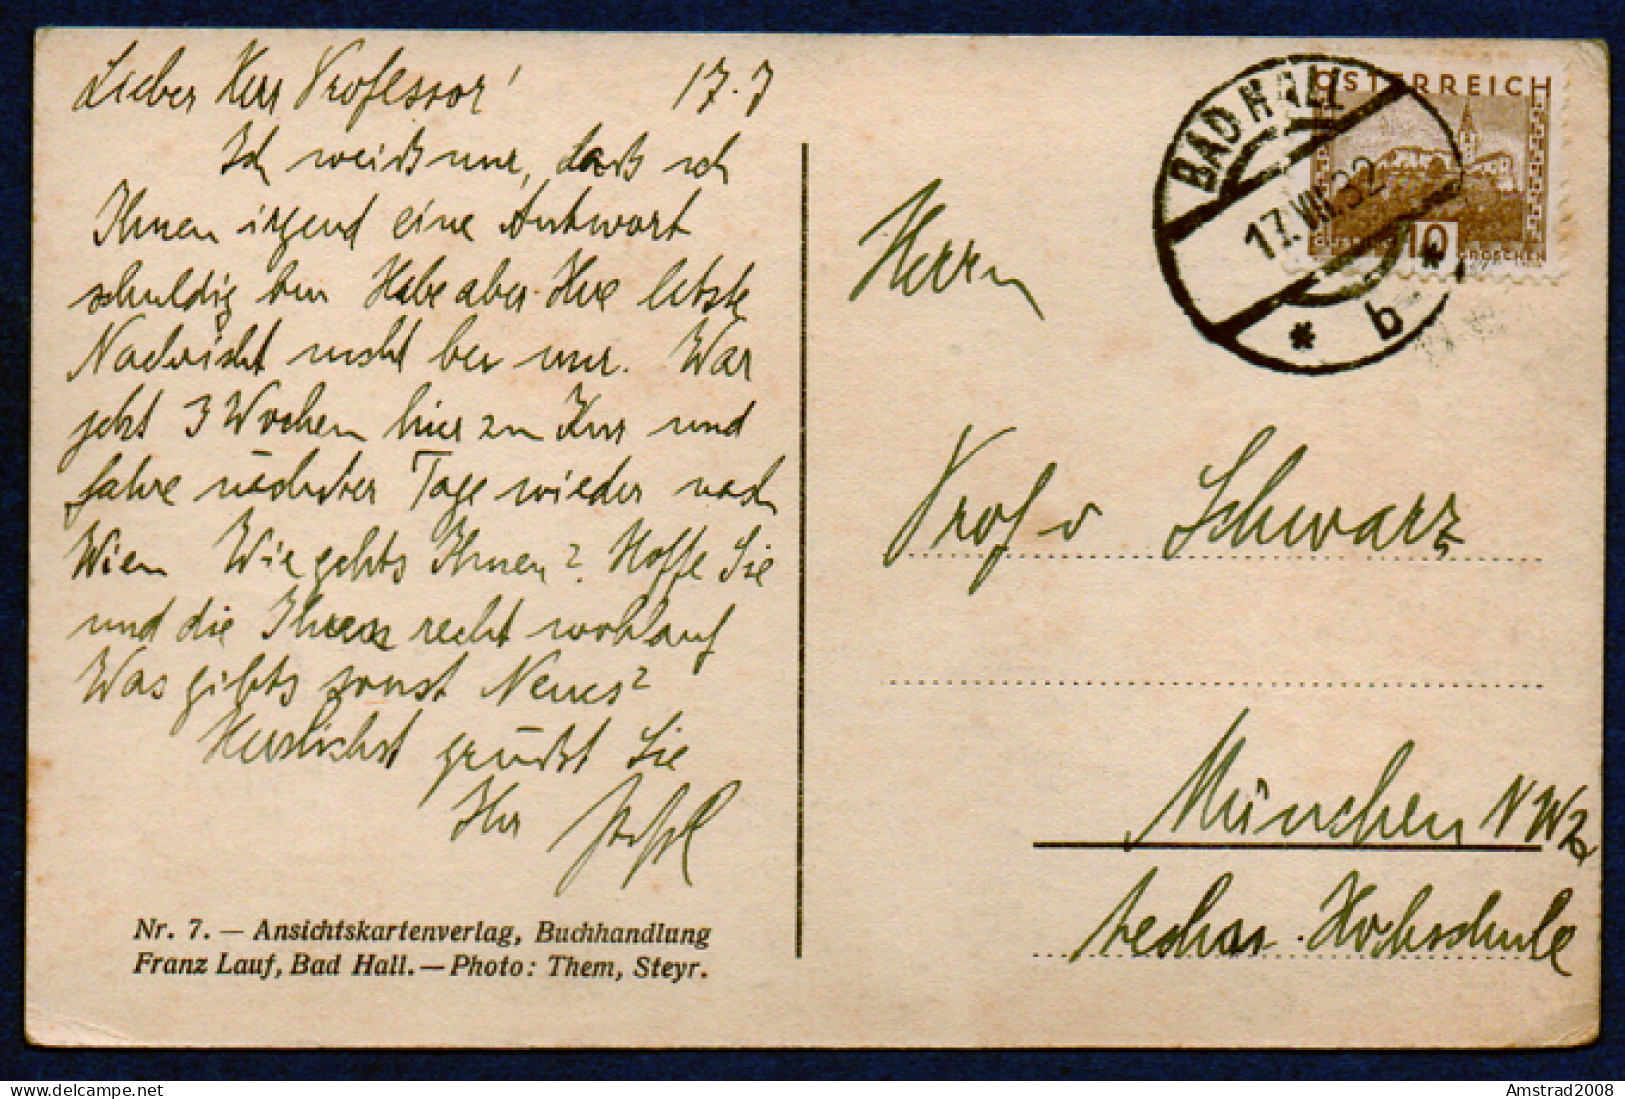 Lieber Herr Professor! 17.7
Ich weiß nur, daß ich
Ihnen irgend eine Antwort
schuldig bin Habe aber Ihre letzte
Nachricht nicht bei mir. War
jetzt 3 Wochen hier zur Kur und
fahre nächster Tage wieder nach
Wien Wie gehts Ihnen? Hoffe Sie
und die Ihren recht wohlauf
Was gibts sonst Neues?
Herzlichst grüßt Sie
Ihr
Nr. 7. — Ansichtskartenverlag, Buchhandlung
Franz Lauf, Bad Hall. — Photo: Them, Steyr.
BAD HALL
17.VII.32
* b *
ÖSTERREICH
10
GROSCHEN
Herrn
Prof v Schwarz
München NW2
techn. Hochschule
www.delcampe.net
Amstrad2008